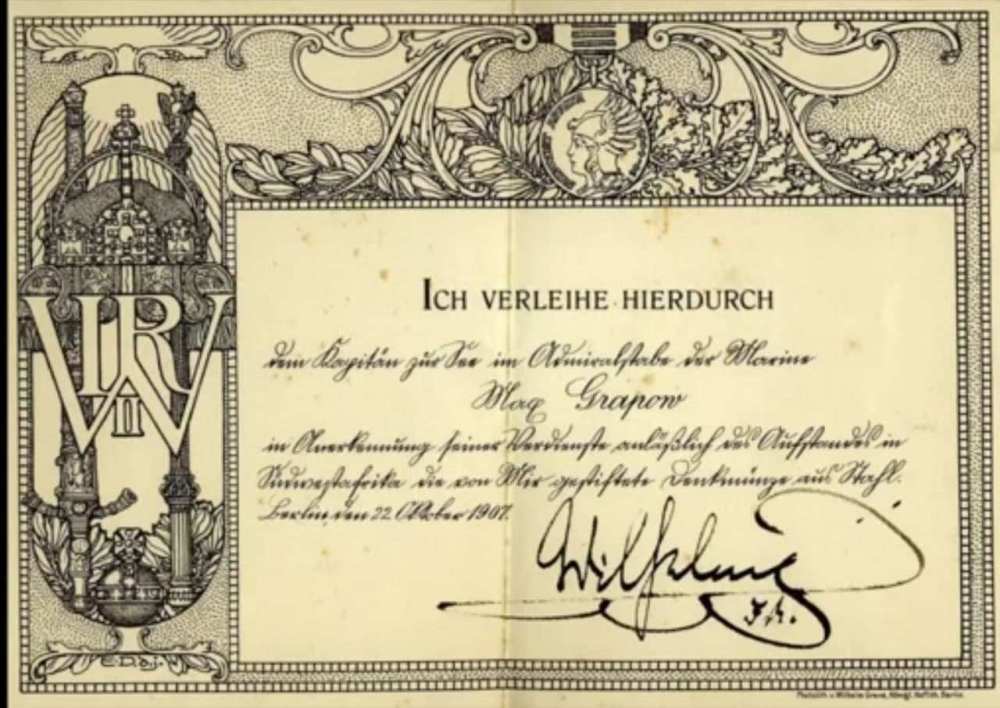 WR
II
ICH VERLEIHE HIERDURCH
dem Kapitän zur See im Admiralstabe der Marine
Max Grapow
in Anerkennung seiner Verdienste anläßlich des Aufstandes in
Südwestafrika die von Mir gestiftete Denkmünze aus Stahl.
Berlin, den 22 Oktober 1907.
Wilhelm
I.R.
E.D.d.j.